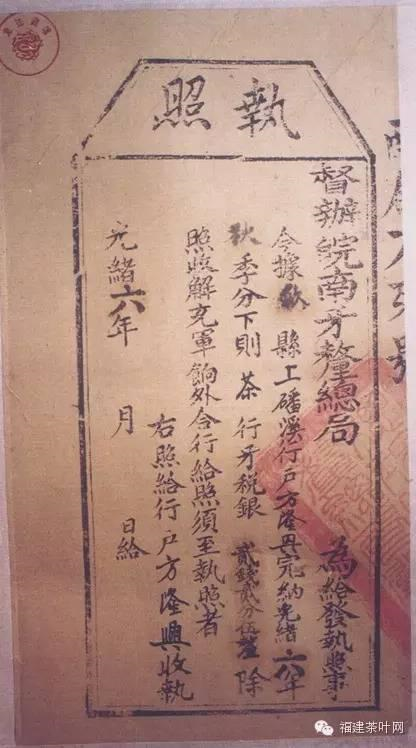 執照
督辦皖南牙釐總局 為給發執照事
今據歙縣上磻溪行戶方隆興完納光緒十六年
秋季分下則茶行牙稅銀貳錢貳分伍釐除
照解充軍餉外合行給照須至執照者
右照給行戶方隆興收執
光緒十六年 月 日給
福建茶叶网